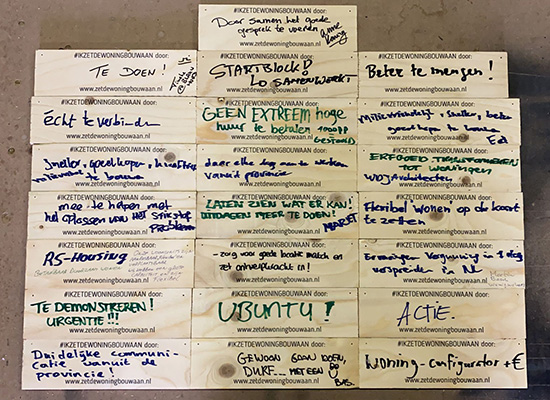 #IKZETDEWONINGBOUWAAN door:
Door samen het goede
gesprek te voeren
www.zetdewoningbouwaan.nl
#IKZETDEWONINGBOUWAAN door:
TE DOEN!
www.zetdewoningbouwaan.nl
#IKZETDEWONINGBOUWAAN door:
STARTBLOCK!
Lo SAMENWERKT
www.zetdewoningbouwaan.nl
#IKZETDEWONINGBOUWAAN door:
Beter te mengen!
www.zetdewoningbouwaan.nl
#IKZETDEWONINGBOUWAAN door:
écht te verbinden
www.zetdewoningbouwaan.nl
#IKZETDEWONINGBOUWAAN door:
GEEN EXTREEM hoge
huur te betalen
www.zetdewoningbouwaan.nl
#IKZETDEWONINGBOUWAAN door:
Milieuvriendelijk, sneller, beter
goedkoper te bouwen
Ed
www.zetdewoningbouwaan.nl
#IKZETDEWONINGBOUWAAN door:
Sneller, goedkoper,
te bouwen
www.zetdewoningbouwaan.nl
#IKZETDEWONINGBOUWAAN door:
daar elke dag aan te werken
vanuit provincie
www.zetdewoningbouwaan.nl
#IKZETDEWONINGBOUWAAN door:
ERFGOED TRANSFORMEREN
TOT WONINGEN
architecten
www.zetdewoningbouwaan.nl
#IKZETDEWONINGBOUWAAN door:
mee te helpen met
het oplossen van het stikstof
probleem
www.zetdewoningbouwaan.nl
#IKZETDEWONINGBOUWAAN door:
LATEN ZIEN WAT ER KAN!
UITDAGEN MEER TE DOEN!
MARGET
www.zetdewoningbouwaan.nl
#IKZETDEWONINGBOUWAAN door:
Flexibel wonen op de kaart
te zetten
www.zetdewoningbouwaan.nl
#IKZETDEWONINGBOUWAAN door:
RS-Housing
www.zetdewoningbouwaan.nl
#IKZETDEWONINGBOUWAAN door:
-zorg voor goede locatie match en
zet ontwerpkracht in!
www.zetdewoningbouwaan.nl
#IKZETDEWONINGBOUWAAN door:
Ervaringen Vergunning in 1 dag
verspreiden in NL
www.zetdewoningbouwaan.nl
#IKZETDEWONINGBOUWAAN door:
TE DEMONSTREREN!
URGENTIE!!!
www.zetdewoningbouwaan.nl
#IKZETDEWONINGBOUWAAN door:
UBUNTU!
www.zetdewoningbouwaan.nl
#IKZETDEWONINGBOUWAAN door:
ACTIE.
www.zetdewoningbouwaan.nl
#IKZETDEWONINGBOUWAAN door:
Duidelijke communi-
catie vanuit de
provincie!
www.zetdewoningbouwaan.nl
#IKZETDEWONINGBOUWAAN door:
GEWOON GAAN DOEN,
DURF... MET EEN
BAS.
www.zetdewoningbouwaan.nl
#IKZETDEWONINGBOUWAAN door:
Woning-configurator + €
www.zetdewoningbouwaan.nl